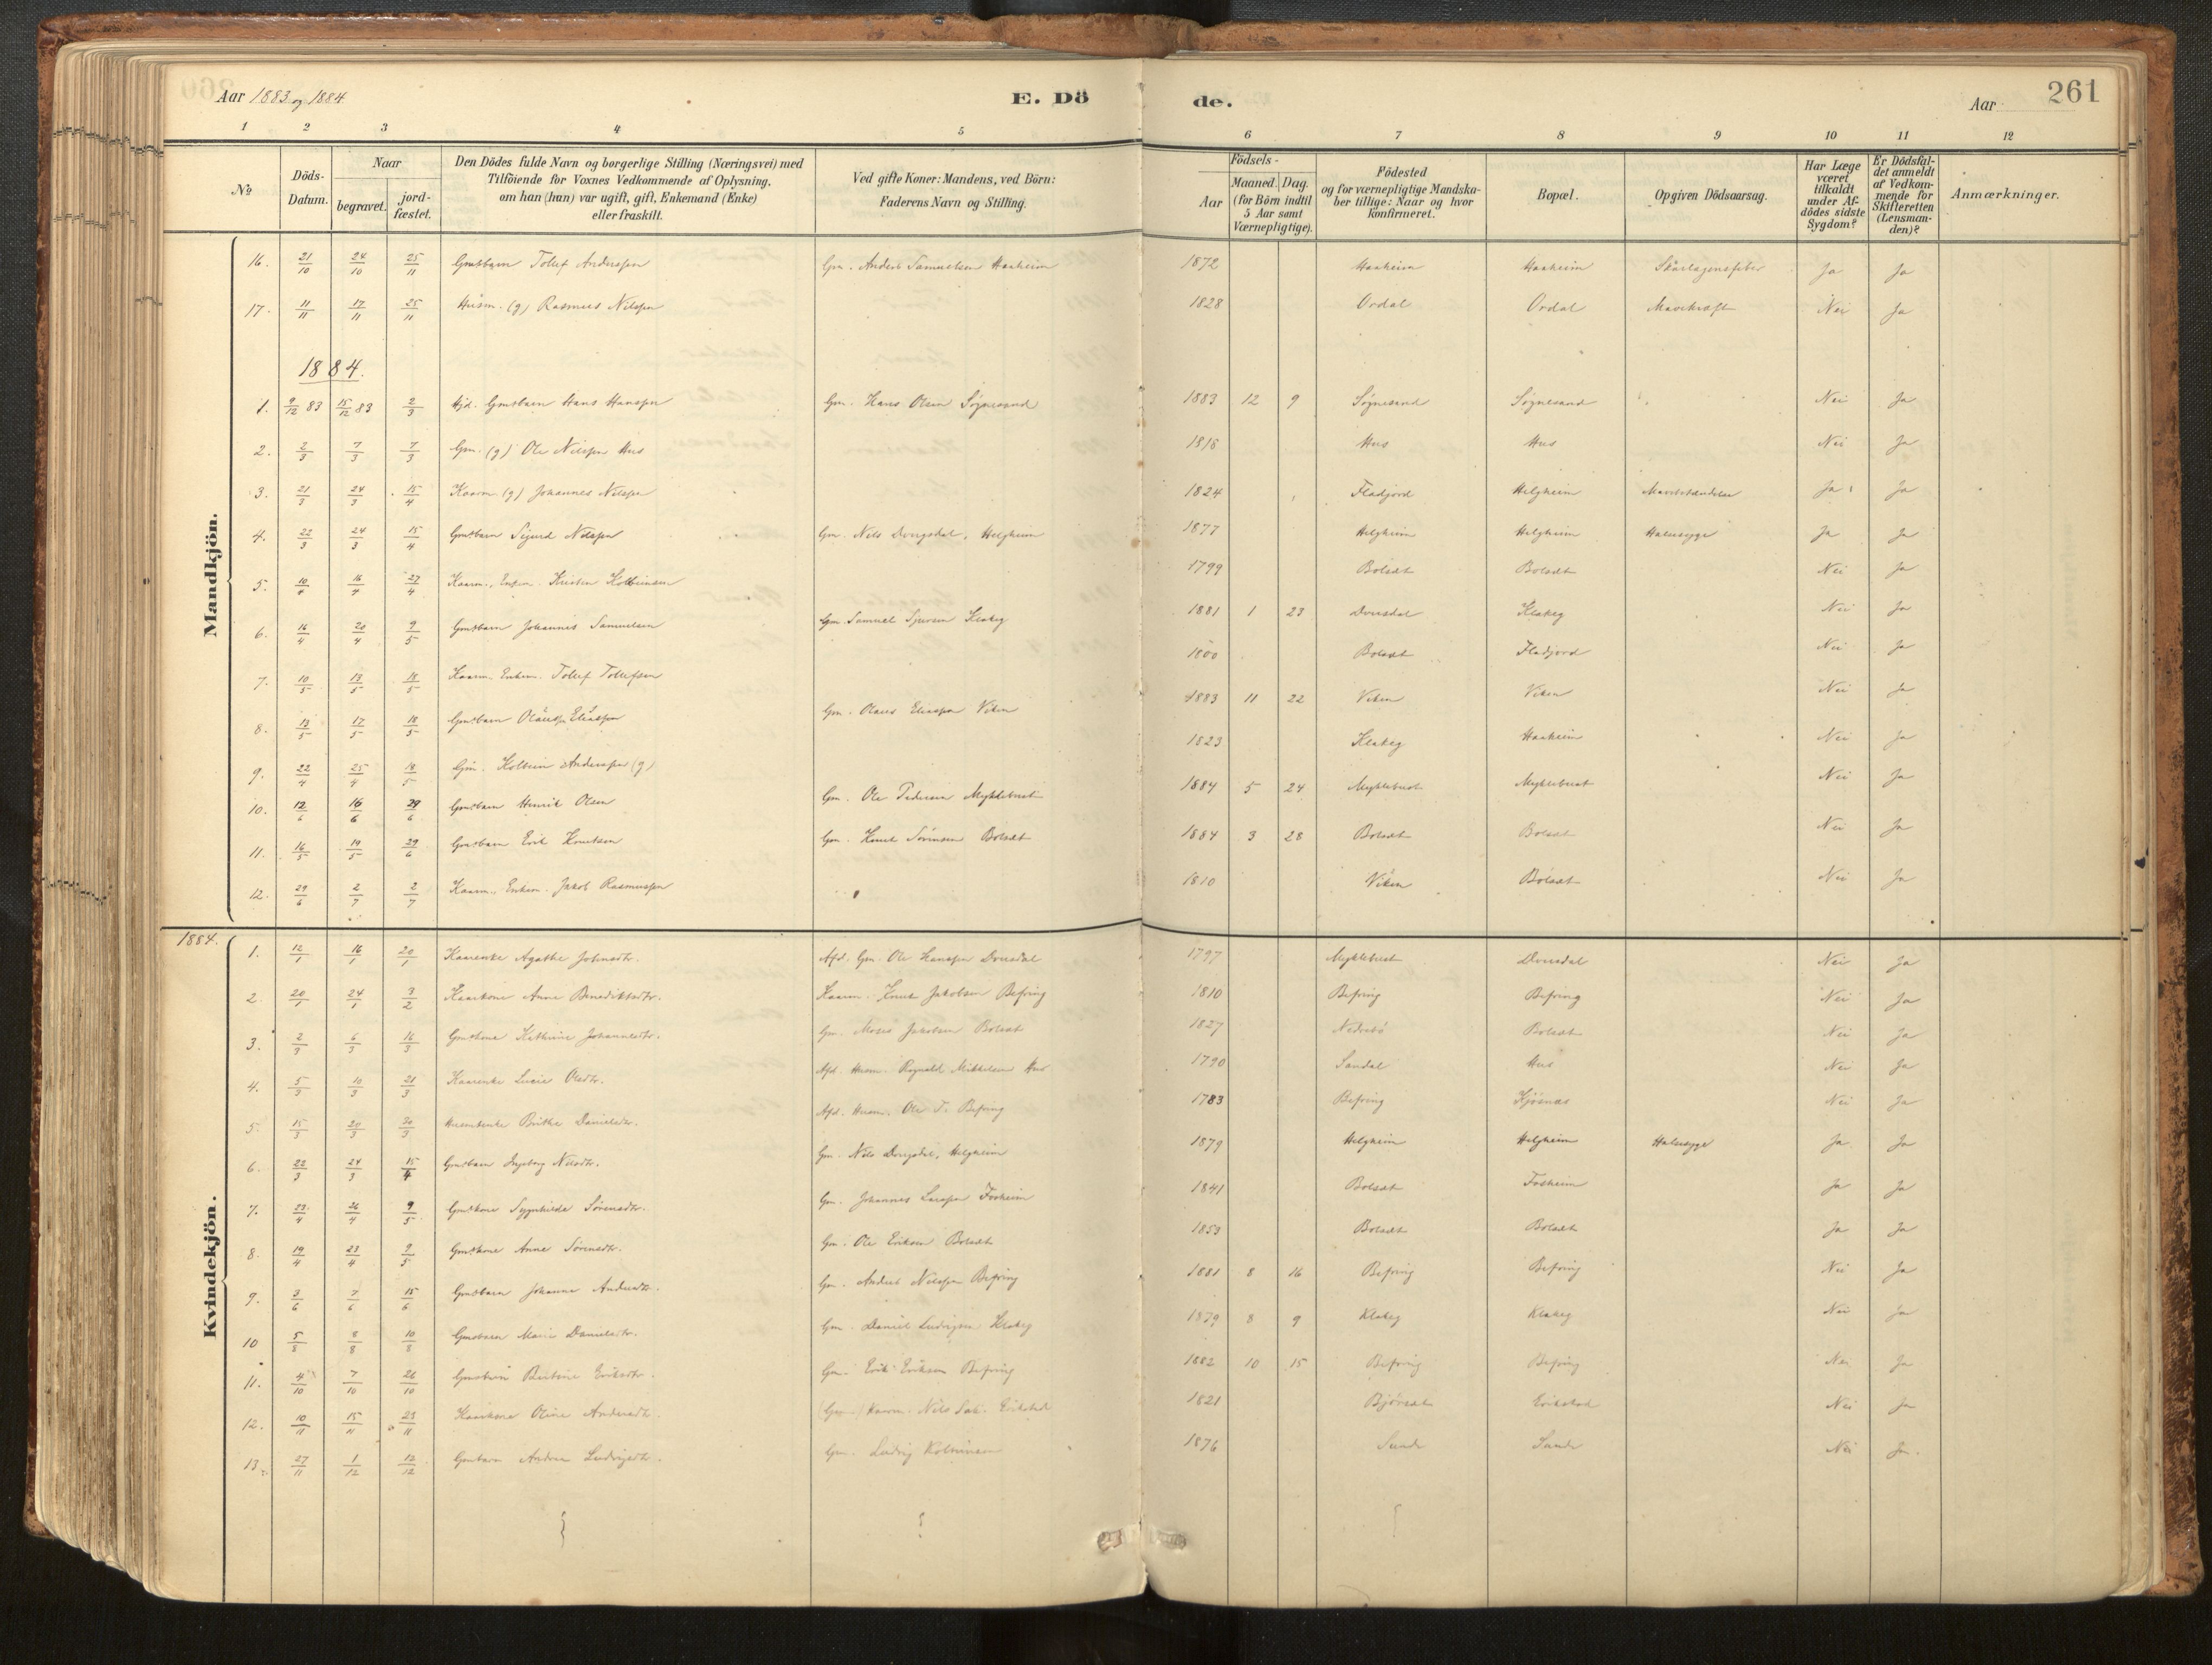 Aar 1883 og 1884
E. Dö
de.
Aar
261
1 2 3 4 5 6 7 8 9 10 11 12
No
Döds-Datum.
Naar
begravet.
jordfæstet.
Den Dödes fulde Navn og borgerlige Stilling (Næringsvei) med
Tilföiende for Voxnes Vedkommende af Oplysning,
om han (hun) var ugift, gift, Enkemand (Enke)
eller fraskilt.
Ved gifte Koner: Mandens, ved Börn:
Faderens Navn og Stilling.
Födsels-
Aar
Maaned. Dag.
(for Börn indtil
5 Aar samt
Værnepligtige).
Födested
og for værnepligtige Mandska-
ber tillige: Naar og hvor
konfirmeret.
Bopæl.
Opgiven Dödsaarsag.
Har Læge
været
tilkaldt
under Af-
dödes sidste
Sygdom?
Er Dödsfal-
det anmeldt
af Vedkom-
mende for
Skifteretten
(Lensman-
den)?
Anmærkninger.
Mandkjön.
16. 21/10 24/10 25/11 Gmsbarn Tollef Anderssen Gm. Anders Samuelsen Haaheim 1872 Haaheim Haaheim Skarlagensfeber Ja Ja
17. 11/11 17/11 25/11 Husm. (g) Rasmus Nilssen 1828 Ordal Ordal Mavekræft Nei Ja
1884.
1. 9/12 83 15/12 83 2/3 Hjd. Gmsbarn Hans Hanssen Gm. Hans Olsen Søgnesand 1883 12 9 Søgnesand Søgnesand Nei Ja
2. 2/3 7/3 7/3 Gm. (g) Ole Nilssen Hus 1818 Hus Hus Nei Ja
3. 21/3 24/3 15/4 Kaarm. (g) Johannes Nilssen 1824 Fladjord Helgheim Ja Ja
4. 22/3 24/3 15/4 Gmsbarn Sigurd Nilssen Gm. Nils Dvergsdal, Helgheim 1877 Helgheim Helgheim Halssyge Ja Ja
5. 10/4 16/4 27/4 Kaarm. Enkem. Kristen Kolbeinsen 1799 Bolsæt Bolsæt Nei Ja
6. 16/4 20/4 9/5 Gmsbarn Johannes Samuelsen Gm. Samuel Sjursen Klakeg 1881 1 23 Dvusdal Klakeg Nei Ja
7. 10/5 13/5 18/5 Kaarm. Enkem. Tollef Tollefsen 1800 Bolsæt Fladjord Nei Ja
8. 13/5 17/5 18/5 Gmsbarn Olaus Eliassen Gm. Olaus Eliassen Viken 1883 11 22 Viken Viken Nei Ja
9. 22/4 25/4 18/5 Gm. Kolbein Anderssen (g) 1823 Klakeg Haaheim Nei Ja
10. 12/6 16/6 29/6 Gmsbarn Henrik Olsen Gm. Ole Pedersen Myklebust 1884 5 24 Myklebust Myklebust Nei Ja
11. 16/5 19/5 29/6 Gmsbarn Erik Knutsen Gm. Knut Sørensen Bolsæt 1884 3 28 Bolsæt Bolsæt Nei Ja
12. 29/6 2/7 2/7 Kaarm. Enkem. Jakob Rasmussen 1810 Viken Bolsæt Nei Ja
Kvindekjön.
1884.
1. 12/1 16/1 20/1 Kaarenke Agathe Johnsdtr. Afd. Gm. Ole Hanssen Dvusdal 1797 Myklebust Dvusdal Nei Ja
2. 20/1 24/1 3/2 Kaarkone Anne Benediktsdtr. Kaarm. Knut Jakobsen Befring 1810 Befring Befring Nei Ja
3. 2/3 6/3 16/3 Gmskone Kathrine Johannesdtr. Gm. Moses Jakobsen Bolsæt 1827 Nedrebö Bolsæt Nei Ja
4. 5/3 10/3 21/3 Kaarenke Lucie Olsdtr. Afd. Husm. Rognald Mikkelsen Hus 1790 Sandal Hus Nei Ja
5. 15/3 20/3 30/3 Husmsenke Brithe Danielsdtr. Afd. Husm. Ole T. Befring 1783 Befring Kjösnæs Nei Ja
6. 22/3 24/3 15/4 Gmsbarn Ingeborg Nilsdtr. Gm. Nils Dvergsdal, Helgheim 1879 Helgheim Helgheim Halssyge Ja Ja
7. 23/4 26/4 9/5 Gmskone Sygnhilde Sørensdtr. Gm. Johannes Larssen Fosheim 1841 Bolsæt Fosheim Ja Ja
8. 19/4 23/4 9/5 Gmskone Anne Sørensdtr. Gm. Ole Eriksen Bolsæt 1853 Bolsæt Bolsæt Ja Ja
9. 3/6 7/6 15/6 Gmsbarn Johanne Andersdtr. Gm. Anders Nilssen Befring 1881 8 16 Befring Befring Nei Ja
10 5/8 8/8 10/8 Gmsbarn Marie Danielsdtr. Gm. Daniel Ludvigsen Klakeg 1879 8 9 Klakeg Klakeg Nei Ja
11. 4/10 7/10 26/10 Gmsbarn Bertine Eriksdtr. Gm. Erik Eriksen Befring 1882 10 15 Befring Befring Nei Ja
12. 10/11 15/11 23/11 Kaarkone Oline Andersdtr. (Gm.) Kaarm. Nils Sak. Erikstad 1821 Bjørsæt Erikstad Nei Ja
13. 27/11 1/12 12/12 Gmsbarn Andrea Ludvigsdtr. Gm. Ludvig Kolbeinsen 1876 Sunde Sunde Nei Ja.